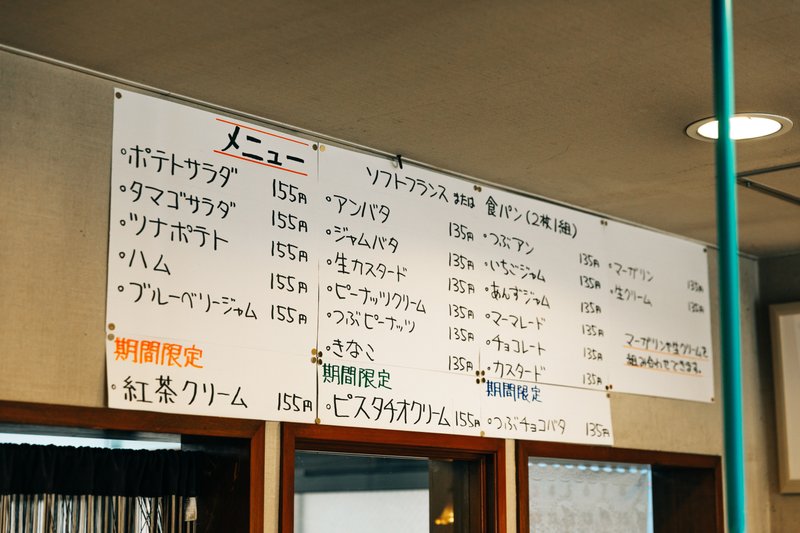 メニュー
・ポテトサラダ 155円
・タマゴサラダ 155円
・ツナポテト 155円
・ハム 155円
・ブルーベリージャム 155円
期間限定
・紅茶クリーム 155円
ソフトフランス または 食パン(2枚1組)
・アンバタ 135円
・ジャムバタ 135円
・生カスタード 135円
・ピーナッツクリーム 135円
・つぶピーナッツ 135円
・きなこ 135円
期間限定
・ピスタチオクリーム 155円
・つぶアン 135円
・いちごジャム 135円
・あんずジャム 135円
・マーマレード 135円
・チョコレート 135円
・カスタード 135円
期間限定
・つぶチョコバタ 135円
・マーガリン 135円
・生クリーム 135円
マーガリンや生クリームを
組み合わせできます。